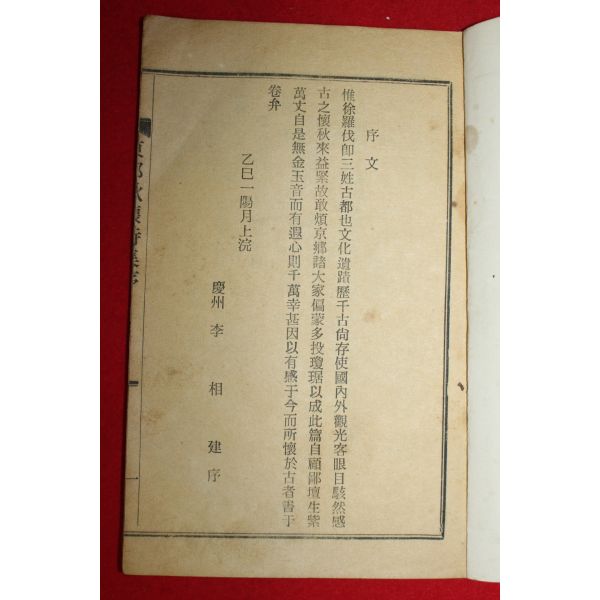 序文
惟徐羅伐卽三姓古都也文化遺蹟歷千古尙存使國內外觀光客眼目駭然感
古之懷秋來益緊故敢煩京鄕諸大家偏蒙多投瓊琚以成此篇自顧鄙壇生紫
萬丈自是無金玉音而有遐心則千萬幸甚因以有感于今而所懷於古者書于
卷弁
乙巳一陽月上浣
慶州李相建序
東都秋懷詩集序
一